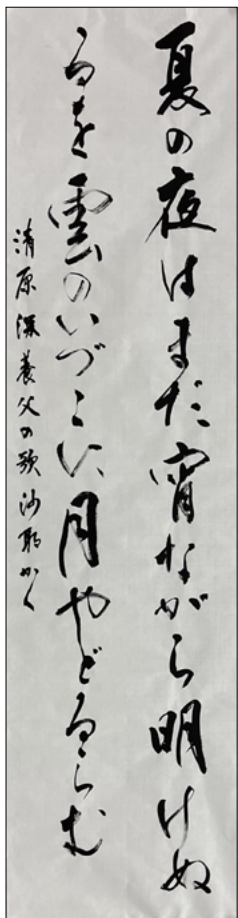 夏の夜はまだ宵ながら明けぬ
るを雲のいづこに月やどるらむ
清原深養父の歌 沙耶かく